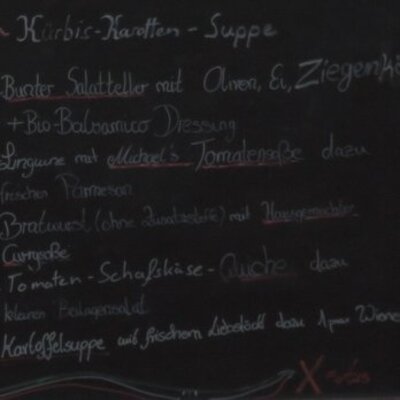 Kürbis-Karotten-Suppe
Bunter Salatteller mit Oliven, Ei, Ziegenkä
+Bio-Balsamico Dressing
Linguine mit Michael's Tomatensoße dazu
frischen Parmesan
Bratwurst (ohne Zusatzstoffe) mit Hausgemachter
Currysoße
Tomaten-Schafskäse-Quiche dazu
kleinen Beilagensalat
Kartoffelsuppe mit frischem Liebstöckl dazu 1 paar Wiene